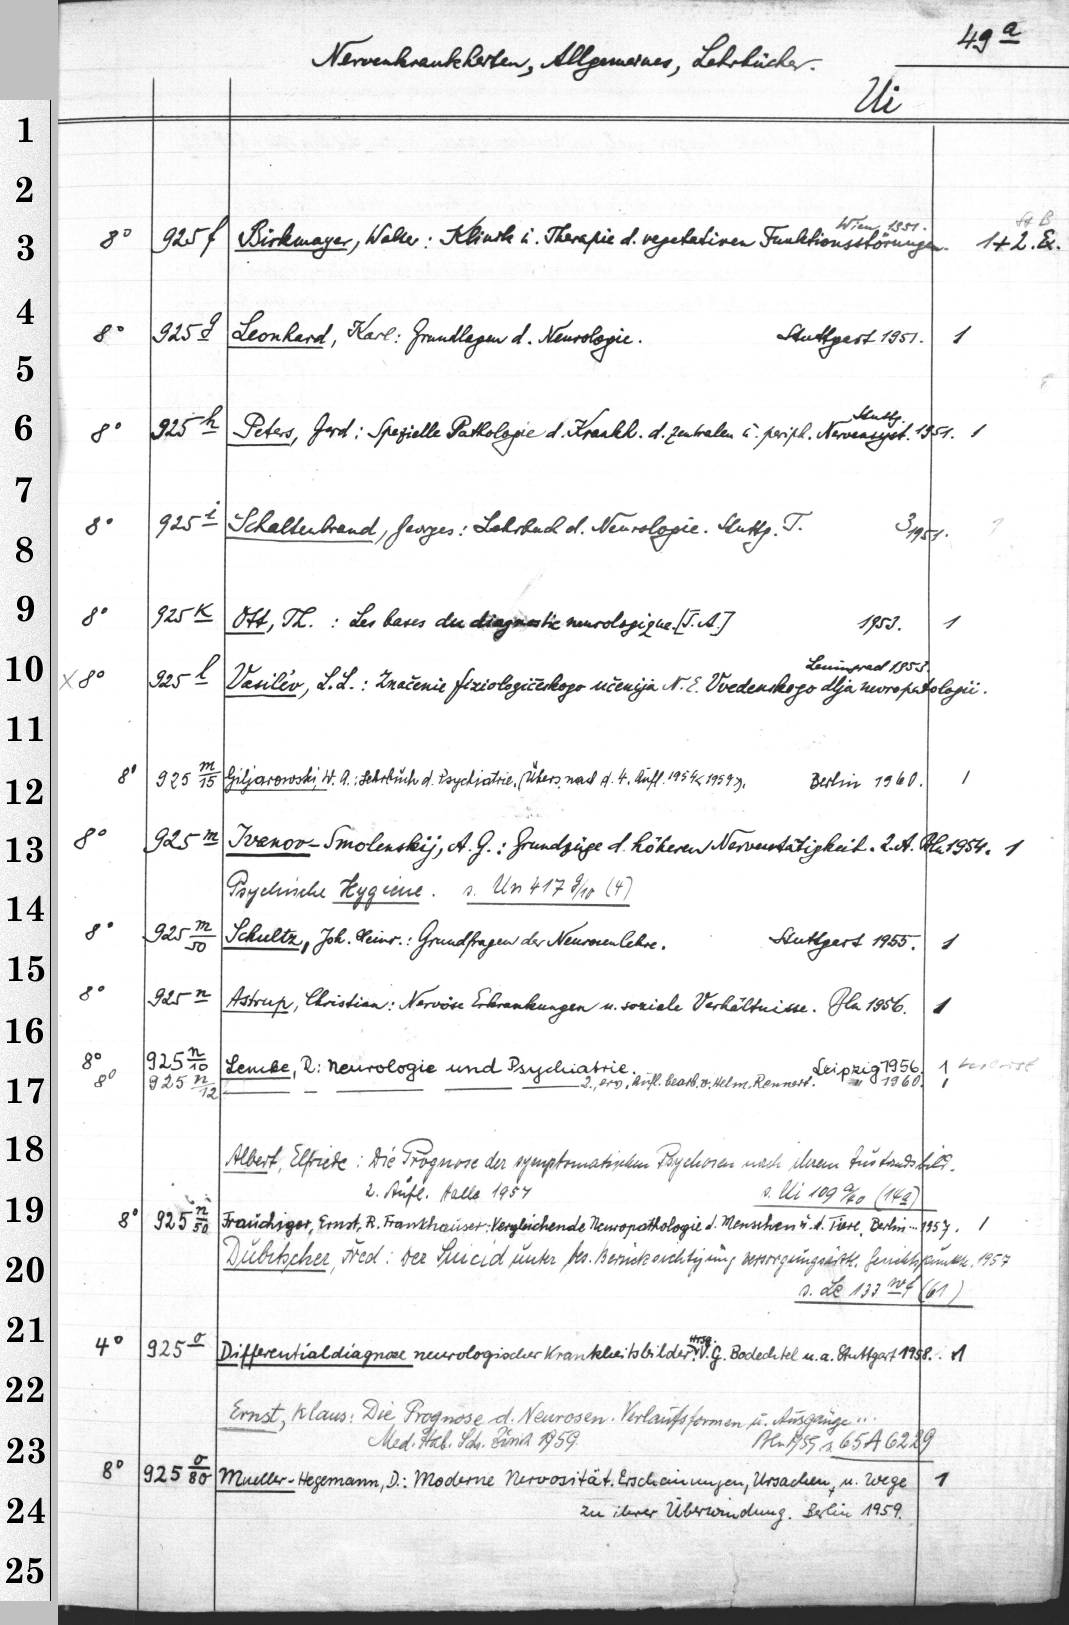 49 a
Nervenkrankheiten, Allgemeines, Lehrbücher.
Ui
1
2
Wien 1951. St B
3 8° 925 f Birkmayer, Walter: Klinik u. Therapie d. vegetativen Funktionsstörungen. 1+2. Ex.
4 8° 925 g Leonhard, Karl: Grundlagen d. Neurologie. Stuttgart 1951. 1
5
Stuttg.
6 8° 925 h Peters, Gerd: Spezielle Pathologie d. Krankh. d. zentralen u. periph. Nervensyst. 1951. 1
7
8° 925 i Schaltenbrand, Georges: Lehrbuch d. Neurologie. Stuttg. T. 3 1951.
8
9 8° 925 k Ott, Th. : Les bases du diagnostic neurologique. [T.A.] 1953. 1
Leningrad 1953.
10 x 8° 925 l Vasil'ev, L.L.: Značenie fiziologičeskogo učenija N. E. Vvedenskogo dlja nevropatologii.
11
12 8° 925 m/15 Giljarowski, W. A.: Lehrbuch d. Psychiatrie. (Übers. nach d. 4. Aufl. 1954<1954>). Berlin 1960. 1
13 8° 925 m Ivanov-Smolenskij, A. G.: Grundzüge d. höheren Nerventätigkeit. 2. A. Bln 1954. 1
Psychische Hygiene. s. Un 417 g/10 (4)
14 8° 925 m/50 Schultz, Joh. Heinr.: Grundfragen der Neurosenlehre. Stuttgart 1955. 1
15 8° 925 n Astrup, Christian: Nervöse Erkrankungen u. soziale Verhältnisse. Bln 1956. 1
16 8° 925 n/10 Lemke, R: Neurologie und Psychiatrie. Leipzig 1956. 1
17 8° 925 n/12 — — — — — 2., erw. Aufl. bearb. v. Helm. Rennert. " 1960. 1
18 Albert, Elfriede: Die Prognose der symptomatischen Psychosen nach ihrem Zustandsbild.
2. Aufl. Halle 1957 s. Ui 109 a/60 (14a)
19 8° 925 n/50 Frauchiger, Ernst, R. Frankhauser: Vergleichende Neuropathologie d. Menschen u. d. Tiere. Berlin... 1957. 1
Dubitscher, Fred: Der Suicid unter bes. Berücksichtigung versorgungsärztl. Gesichtspunkte. 1957
20 s. Le 133 (61)
Hrsg.
21 4° 925 o Differentialdiagnose neurologischer Krankheitsbilder. V. G. Bodechtel u. a. Stuttgart 1958. 1
22 Ernst, Klaus: Die Prognose d. Neurosen. Verlaufsformen u. Ausgänge ...
23 Med. Hab. Sch. Zürich 1959 Bln 1959 s. 65 A 6229
8° 925 o/80 Mueller-Hegemann, D.: Moderne Nervosität. Erscheinungen, Ursachen, u. Wege 1
24 zu ihrer Überwindung. Berlin 1959.
25